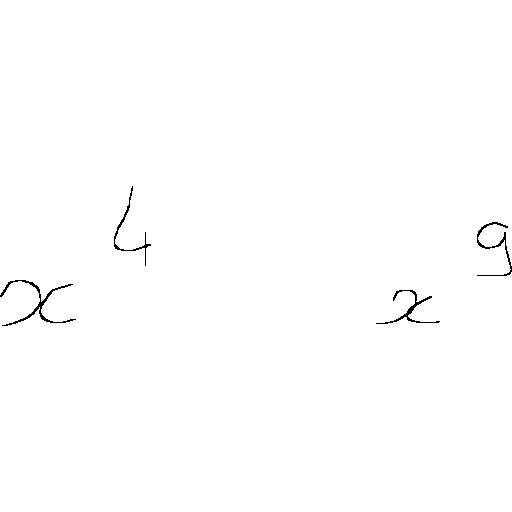 x⁴ x⁹